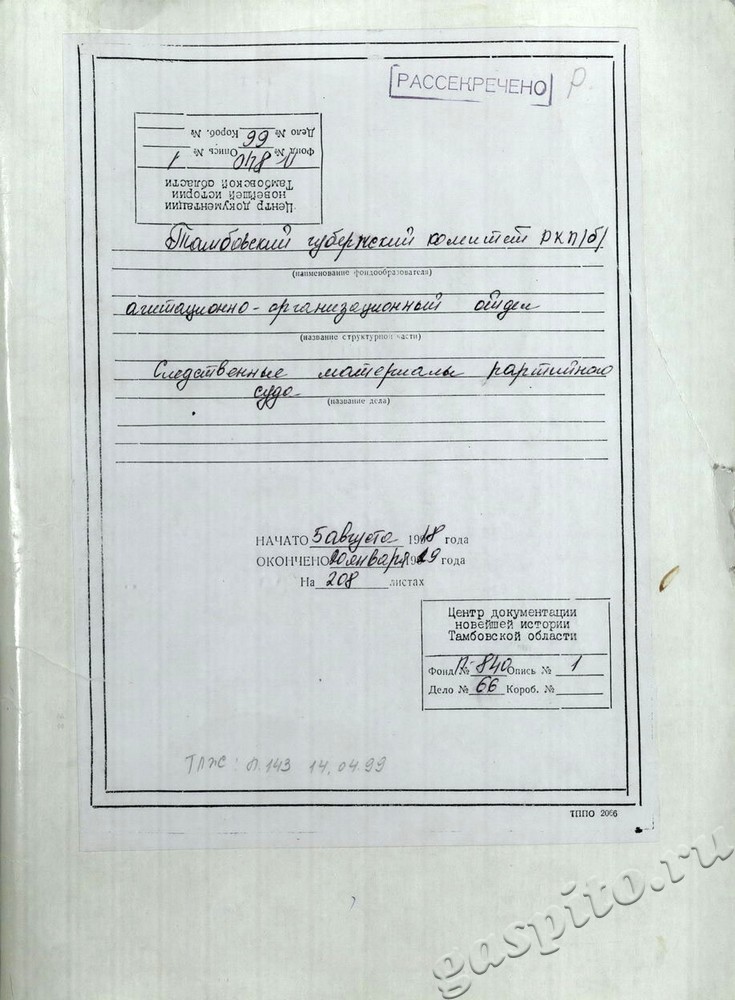 РАССЕКРЕЧЕНО
Р.
Центр документации
новейшей истории
Тамбовской области
Фонд № П-840 Опись № 1
Дело № 66 Короб. №
Тамбовский губернский комитет РКП/б/
(наименование фондообразователя)
агитационно-организационный отдел
(название структурной части)
Следственные материалы партийного
суда
(название дела)
НАЧАТО 5 августа 1918 года
ОКОНЧЕНО 20 января 1919 года
На 208 листах
Центр документации
новейшей истории
Тамбовской области
Фонд № П-840 Опись № 1
Дело № 66 Короб. №
л.143 14.04.99
ТППО 2066
gaspito.ru